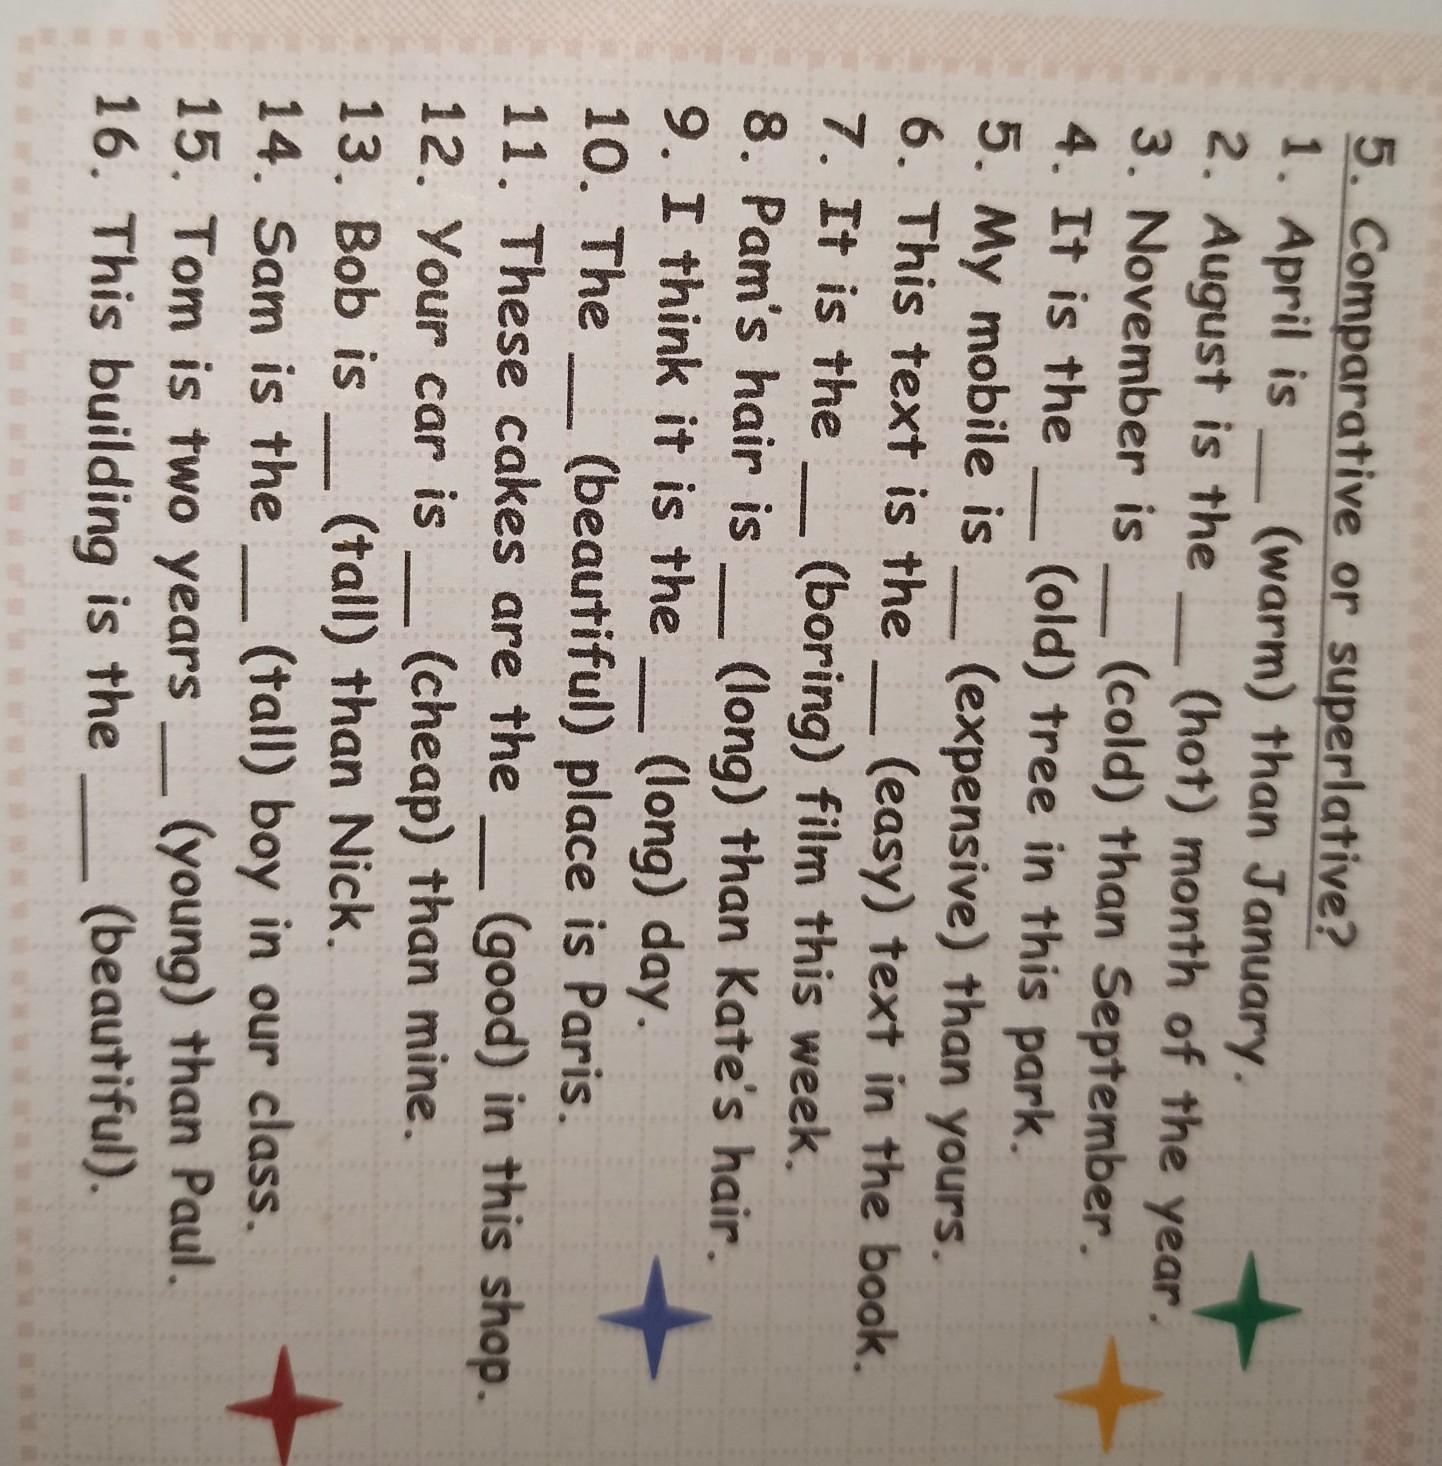 5. Comparative or superlative?
1. April is __ (warm) than January.
2. August is the __ (hot) month of the year.
3. November is __ (cold) than September.
4. It is the __ (old) tree in this park.
5. My mobile is __ (expensive) than yours.
6. This text is the __ (easy) text in the book.
7. It is the __ (boring) film this week.
8. Pam's hair is __ (long) than Kate's hair.
9. I think it is the __ (long) day.
10. The __ (beautiful) place is Paris.
11. These cakes are the __ (good) in this shop.
12. Your car is __ (cheap) than mine.
13. Bob is __ (tall) than Nick.
14. Sam is the __ (tall) boy in our class.
15. Tom is two years __ (young) than Paul.
16. This building is the ___ (beautiful).